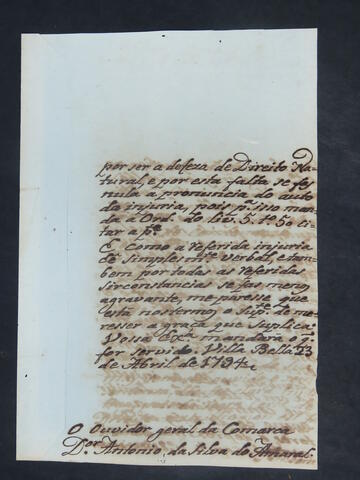 por ser a defeza de Direito Na-
tural, e por esta falta se fes
nula a pronuncia do auto
da injuria, pois pª isso man-
da a Ord. do liv. 5. tº 5o ci-
tar a pte
E como a referida injuria
é simples mte verbal, e tam-
bem por todas as referidas
sirconstancias se fas menos
agravante, me paresse que
está nos termos o supe. de me-
resser a graça que suplica.
Vossa Exª mandara o q
for servido. Villa Bella 23
de Abril de 1794
O Ouvidor geral da Comarca
Dor Antonio da Silva do Amaral